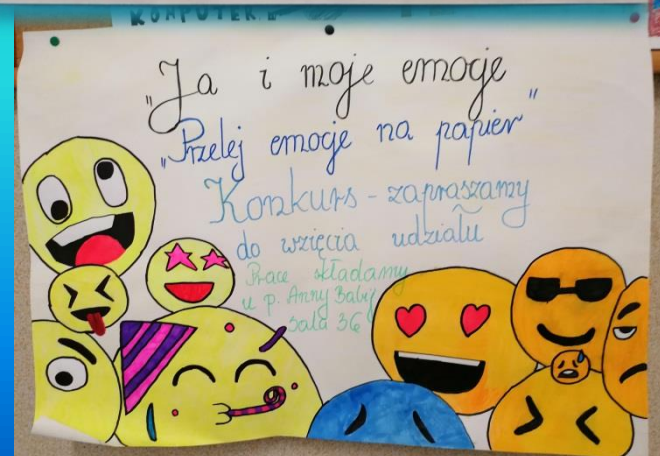 KOMPUTER
„Ja i moje emocje
„Przelej emocje na papier"
Konkurs - zapraszamy
do wzięcia udziału
Prace składamy
u p. Anny Babij
sala 36